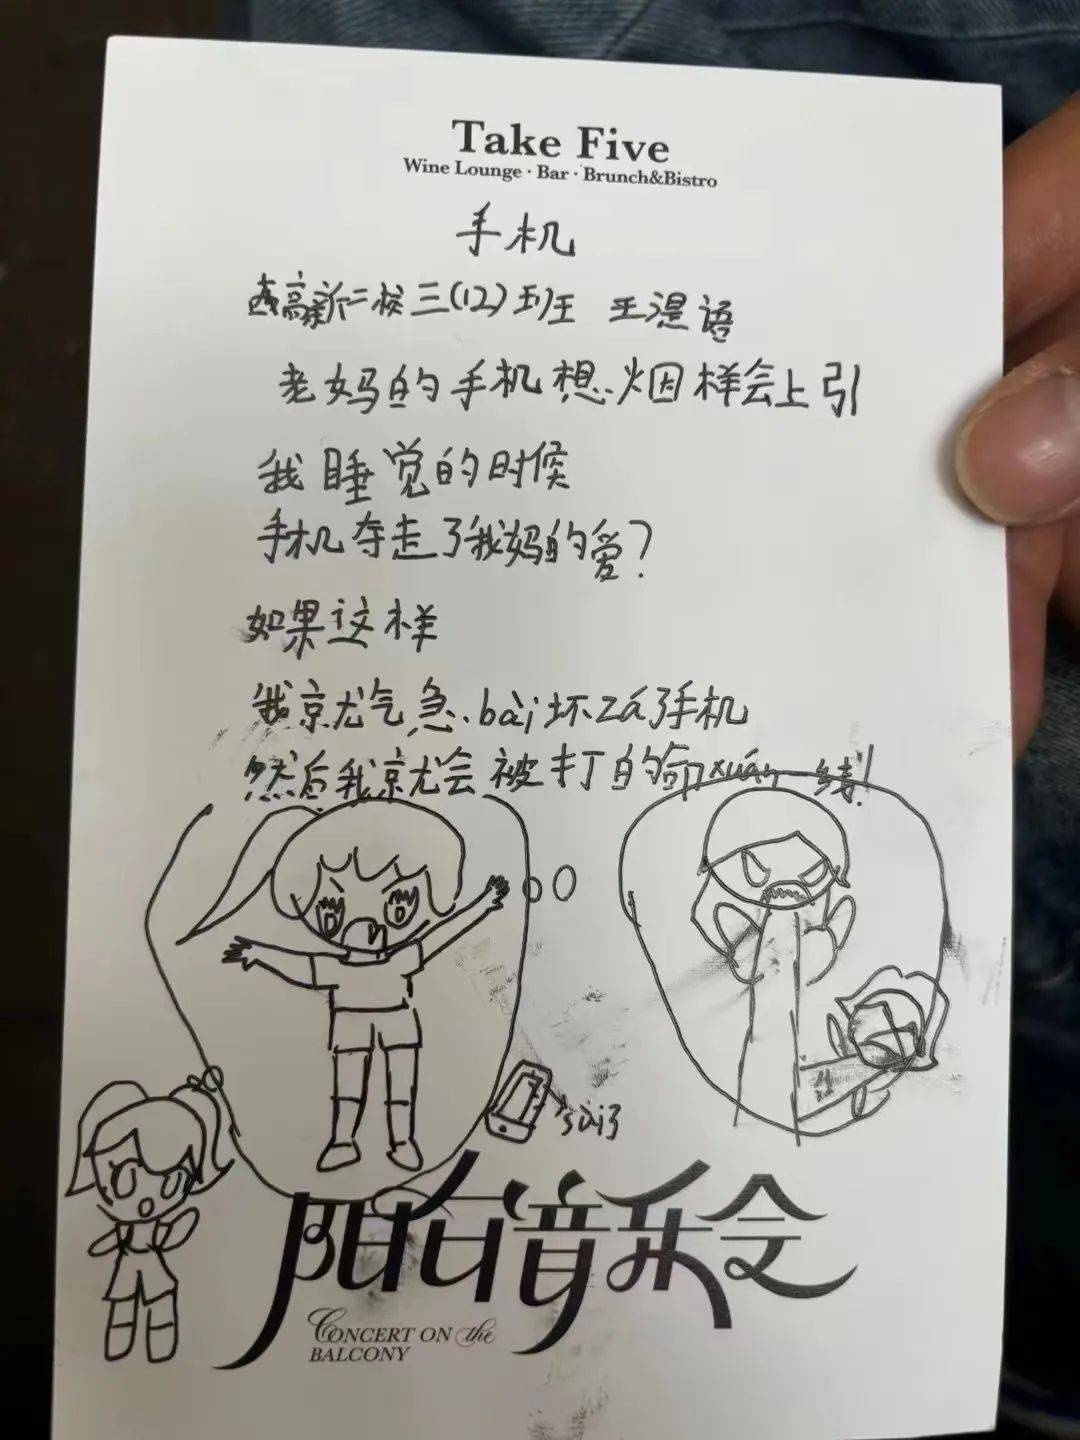 Take Five
Wine Lounge · Bar · Brunch&Bistro
手机
高新二校三(12)班 王湜语
老妈的手机想烟样会上引
我睡觉的时候
手机夺走了我妈的爱?
如果这样
我京尤气急bài坏zá了手机
然后我京尤会被打的命xuán一线!
sùi了
阳台音乐会
CONCERT ON the
BALCONY